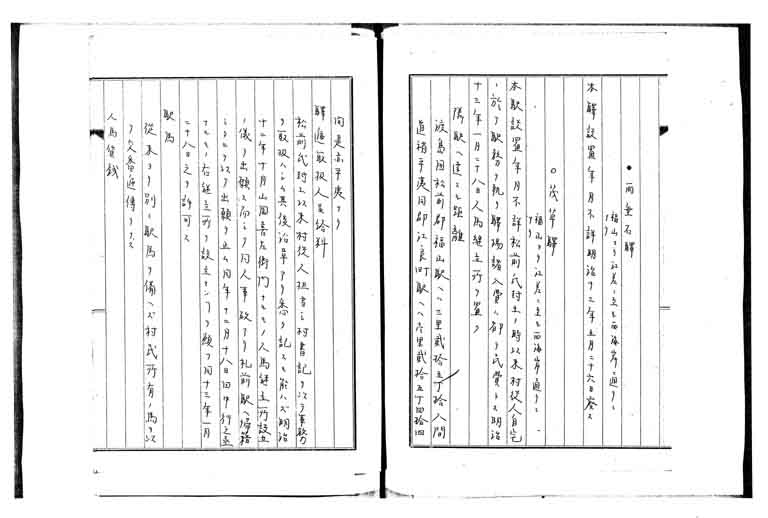 ●雨垂石驛
福山ヨリ江差ニ至ル西海岸通リニ
アリ
本驛設置年月不詳明治十二年五月二十六日廃ス
○茂草驛
福山ヨリ江差ニ至ル西海岸通リニ
アリ
本駅設置年月不詳松前氏封土ノ時以来村役人自宅
ニ於テ駅務ヲ執リ驛場諸入費ハ都テ民費トス明治
十三年一月二十八日人馬継立所ヲ置ク
隣駅ヘ達スル距離
渡島国松前郡福山駅ヘハ三里貳拾五丁拾八間
道梢平夷同郡江良町駅ヘハ六里貳拾五丁四拾四
間是亦平夷ナリ
驛逓取扱人員給料
松前氏封土以来村役人担当シ村書記ヲ以テ事務
ヲ取扱ハシム其後沿革アリ悉ク記スル能ハズ明治
十二年十月山田喜左衛門ナルモノ人馬継立所設立
ノ儀ヲ出願ス而シテ同人事故アリ札前駅ヘ帰務
シタルヲ以テ出願ヲ止ム同年十二月十八日田中行之亟
ナルモノ右継立所ヲ設立センコヲ願フ同十三年一月
二十八日之ヲ許可ス
駅馬
従来ヨリ別ニ駅馬ヲ備ヘズ村民所有ノ馬ヲ以
テ欠番逓傳ヲナス
人馬賃銭